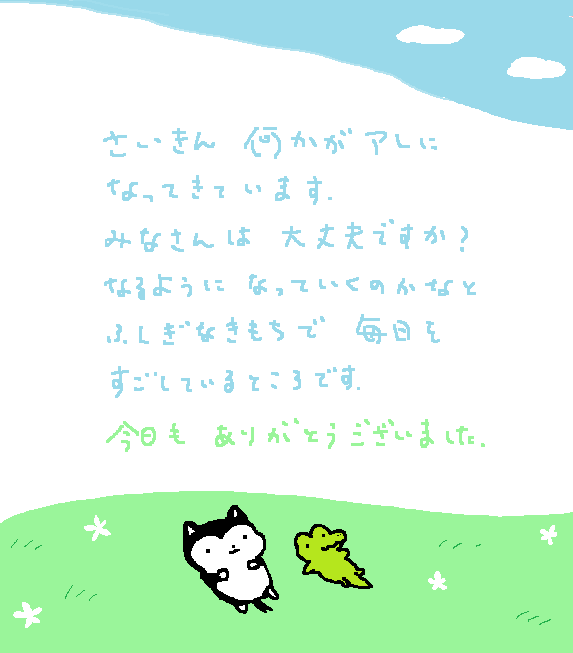 さいきん 何かがアレに
なってきています.
みなさんは 大丈夫ですか?
なるように なっていくのかなと
ふしぎなきもちで 毎日を
すごしているところです.
今日も ありがとうございました.